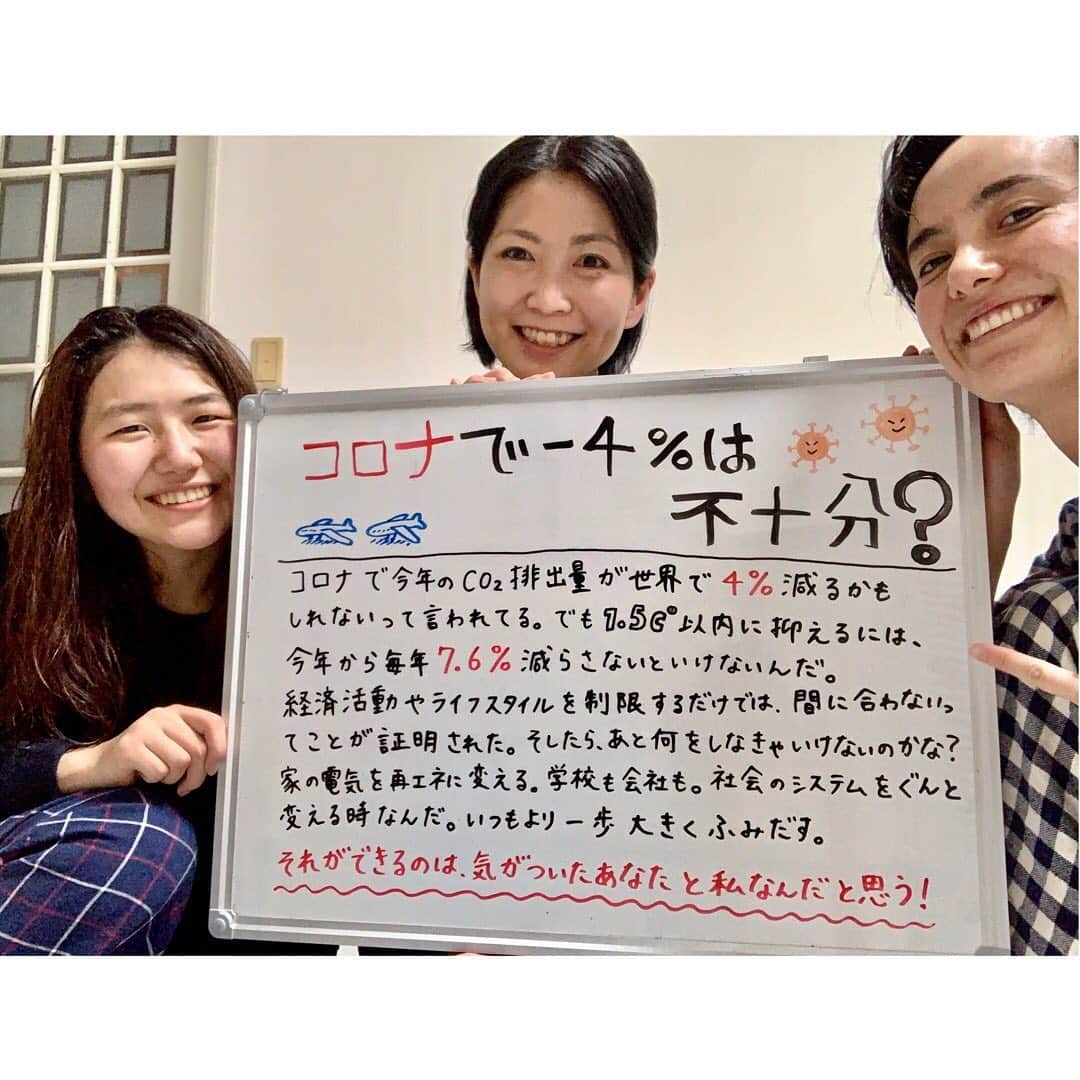 コロナでー4%は
不十分?
コロナで今年のCO₂排出量が世界で4%減るかも
しれないって言われてる。でも1.5C°以内に抑えるには、
今年から毎年7.6%減らさないといけないんだ。
経済活動やライフスタイルを制限するだけでは、間に合わないっ
てことが証明された。そしたら、あと何をしなきゃいけないのかな?
家の電気を再エネに変える。学校も会社も。社会のシステムをぐんと
変える時なんだ。いつもより一歩大きくふみだす。
それができるのは、気がついたあなたと私なんだと思う!